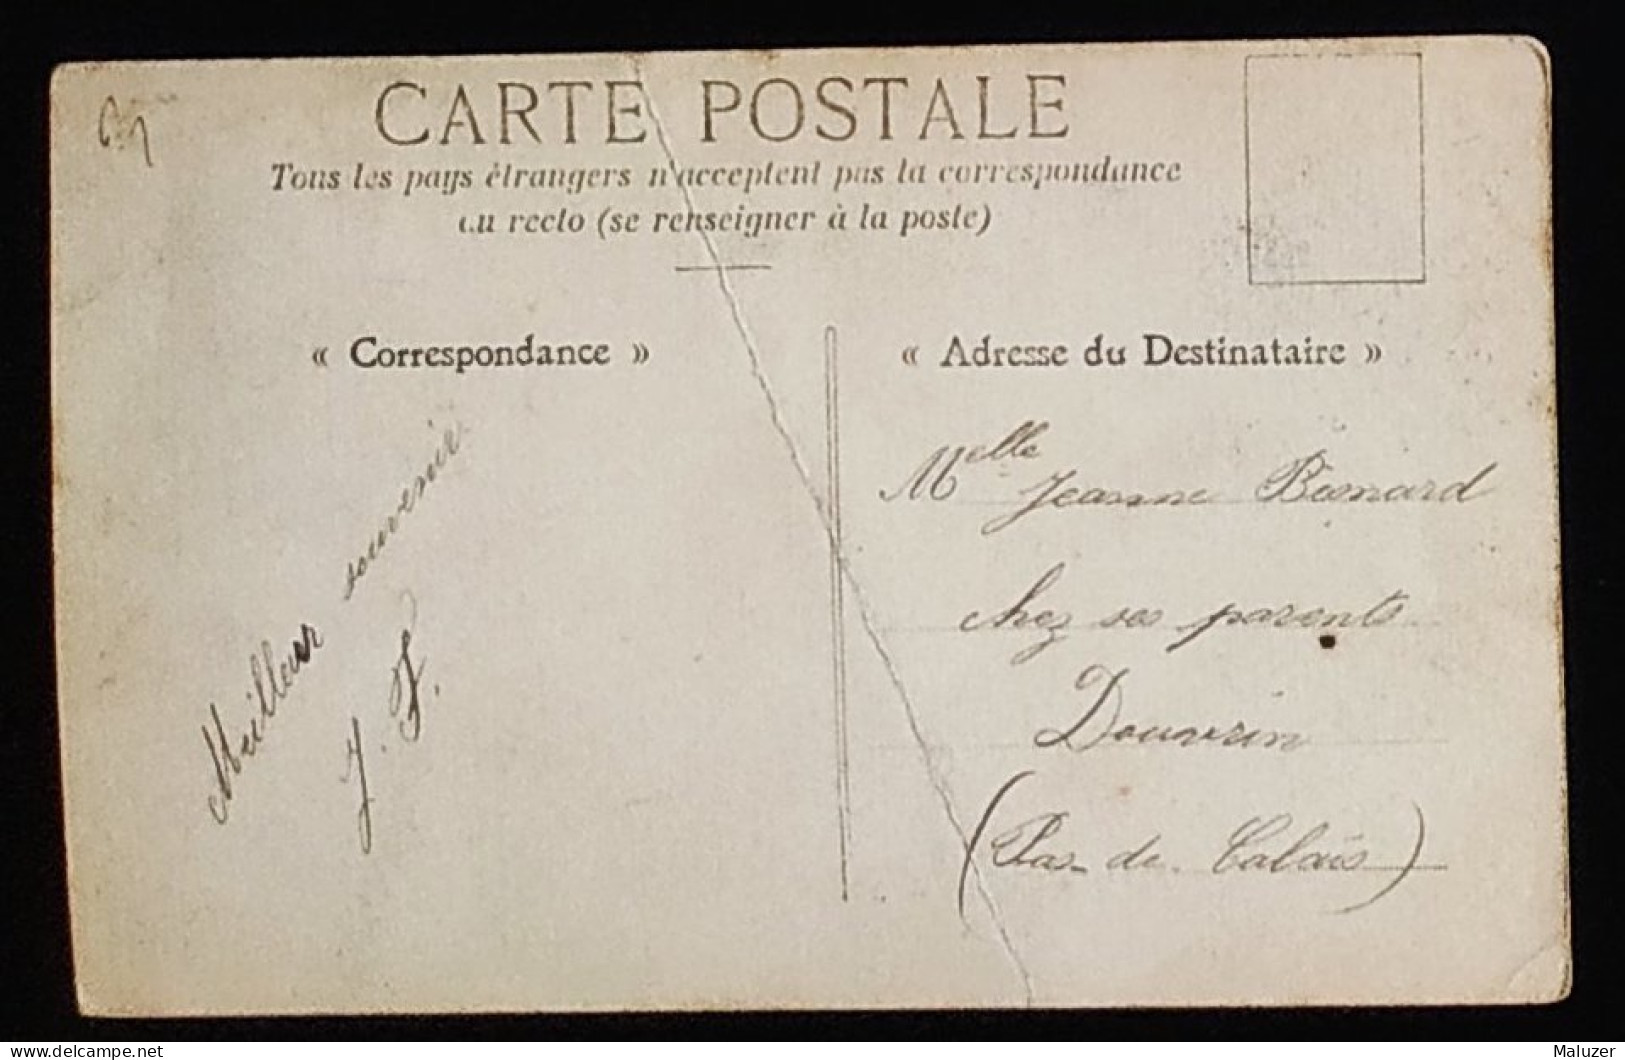 CARTE POSTALE
Tous les pays étrangers n'acceptent pas la correspondance
au recto (se renseigner à la poste)
« Correspondance »
Meilleur souvenir
J. F.
« Adresse du Destinataire »
Melle Jeanne
chez ses parents
Douvrin
(Pas-de-Calais)
delcampe.net
Maluzer